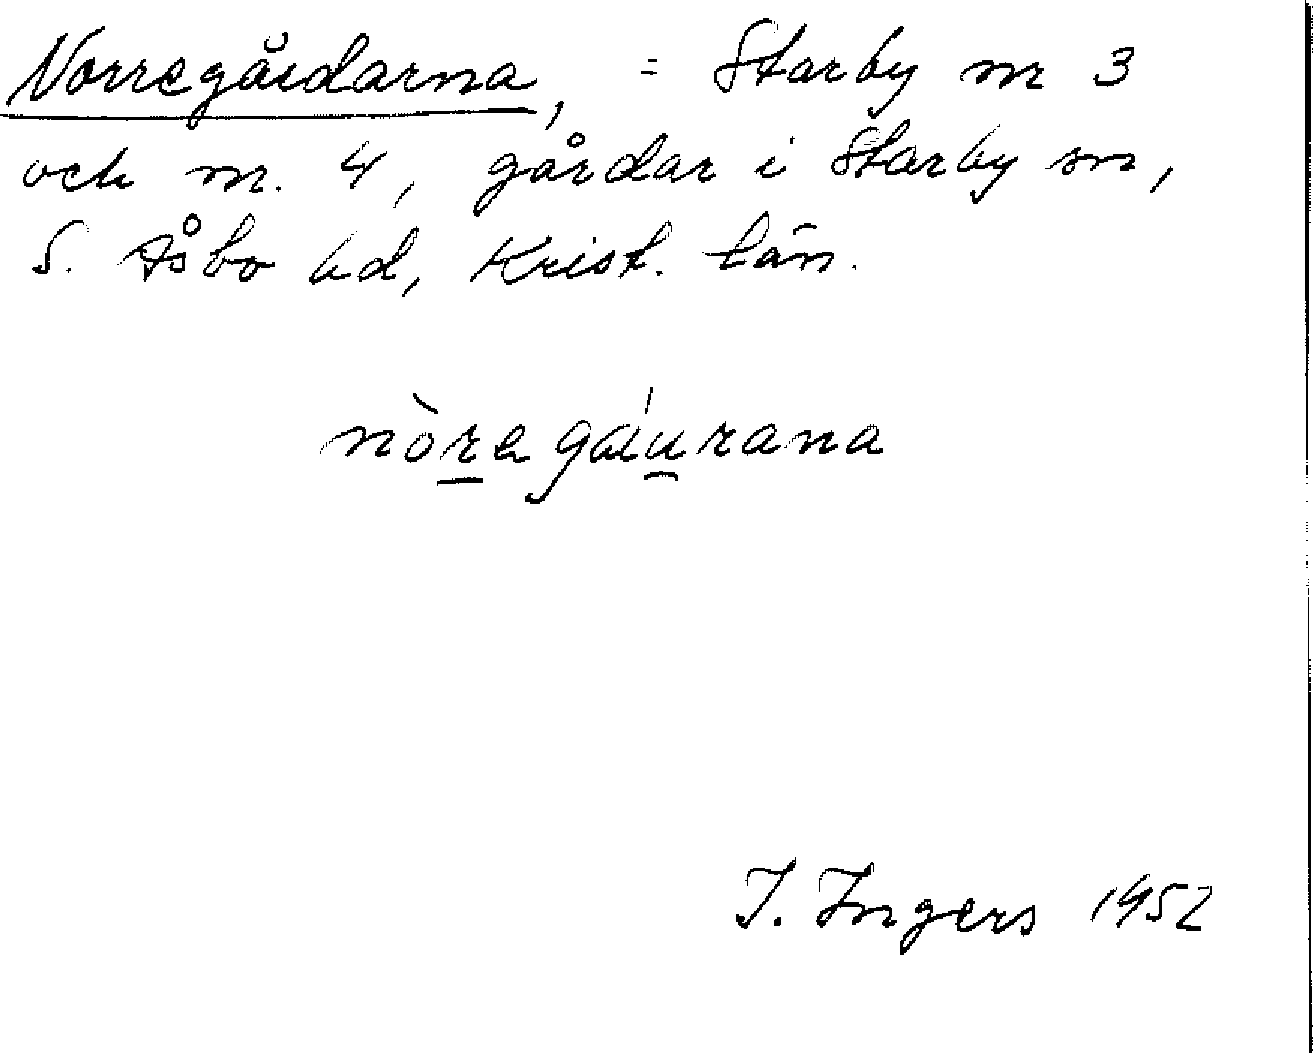 Norregårdarna, = Starby nr 3
och nr. 4, gårdar i Starby sn,
S. Åsbo hd, Krist. län.
nòre gáurana
I. Ingers 1952